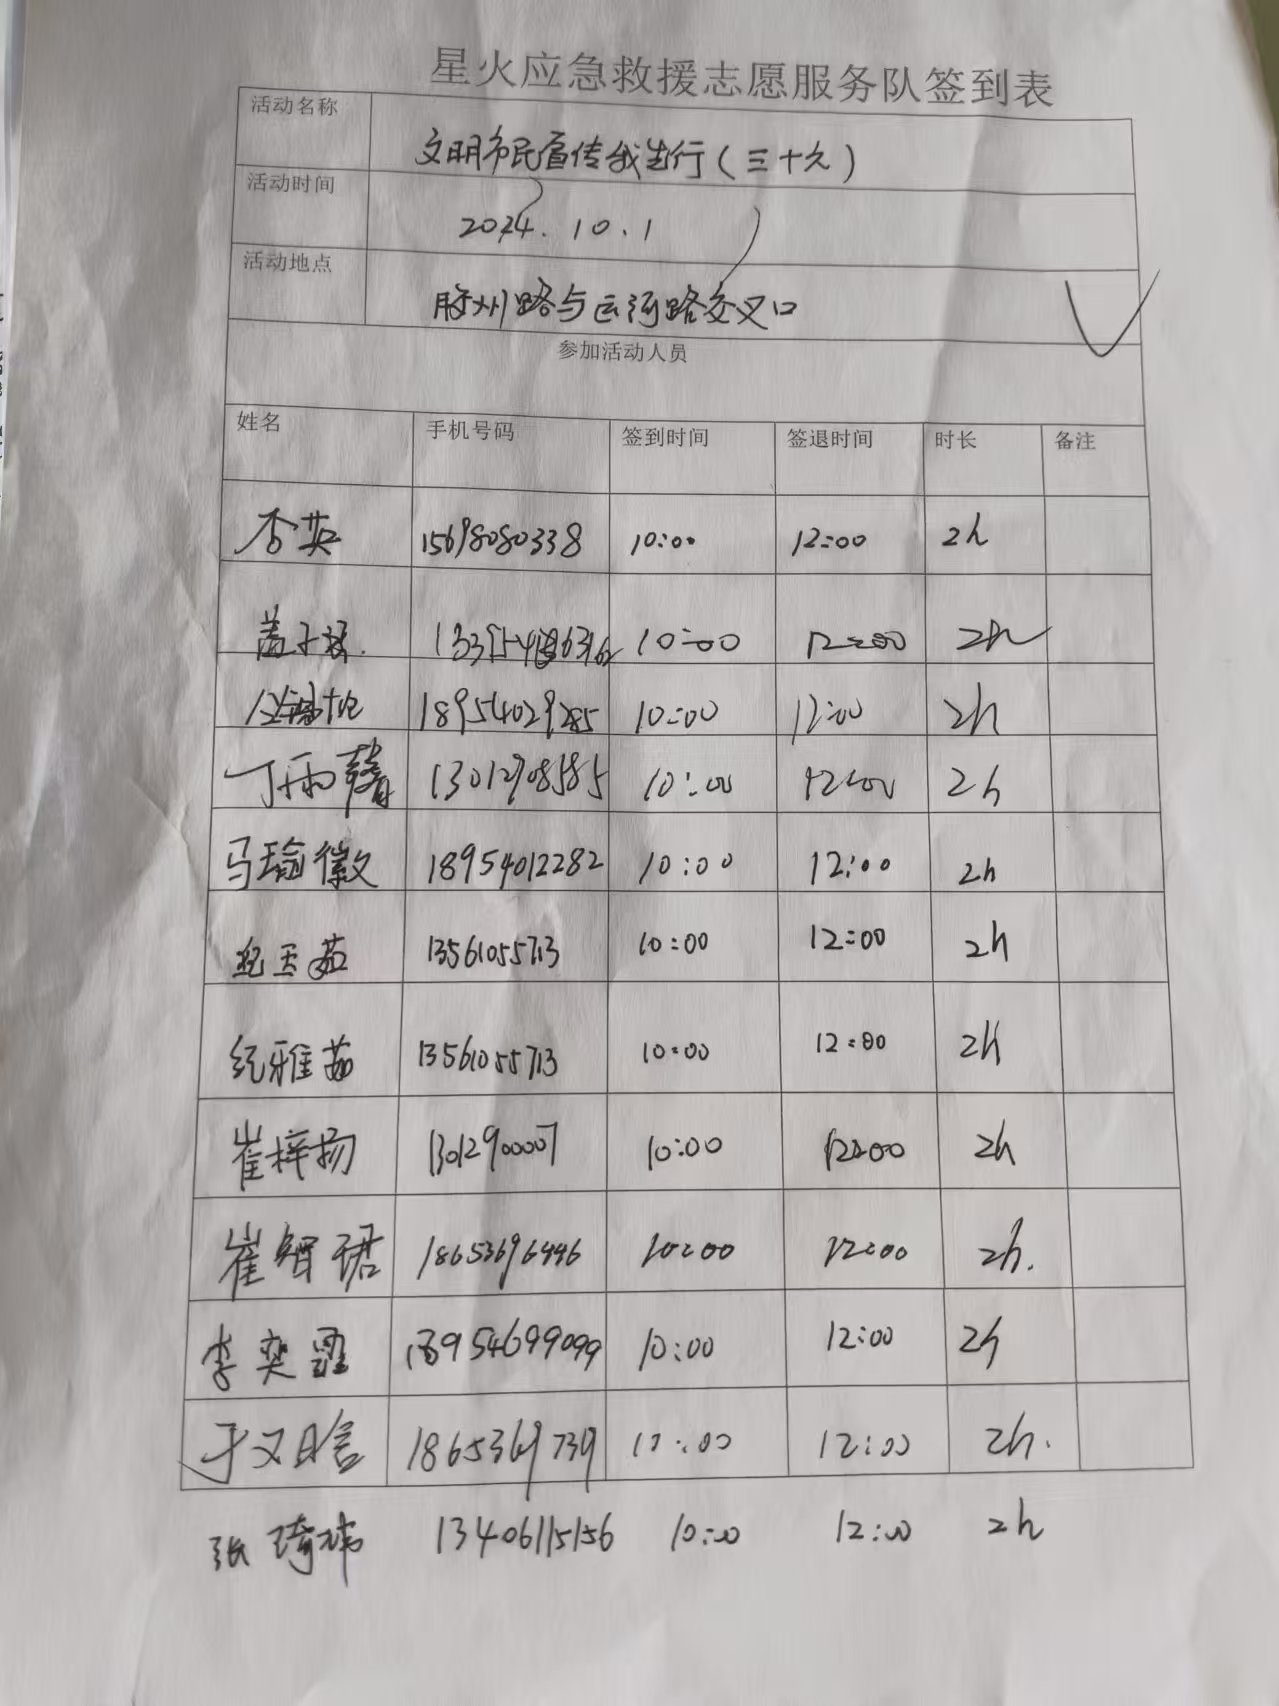 星火应急救援志愿服务队签到表
活动名称 文明市民宣传我先行（三十六）
活动时间 2024.10.1
活动地点 胶州路与运河路交叉口
参加活动人员
姓名 手机号码 签到时间 签退时间 时长 备注
李英 15698080338 10:00 12:00 2h
盖子 10:00 12:00 2h
18954029285 10:00 12:00 2h
丁雨馨 13012908585 10:00 12:00 2h
马瑜徽 18954012282 10:00 12:00 2h
纪玉茹 13561055713 10:00 12:00 2h
纪雅茹 13561055713 10:00 12:00 2h
崔梓扬 13012900007 10:00 12:00 2h
崔智珺 18653696446 10:00 12:00 2h.
李奕霏 18954699099 10:00 12:00 2h
于又晗 1865369739 10:00 12:00 2h.
张琦炜 13406115156 10:00 12:00 2h